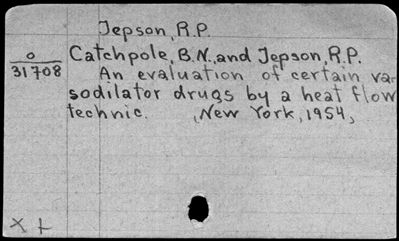 Jepson, R.P.
o
31708
Catchpole, B.N., and Jepson, R.P.
An evaluation of certain va-
sodilator drugs by a heat flow
technic. , New York, 1954,
X t